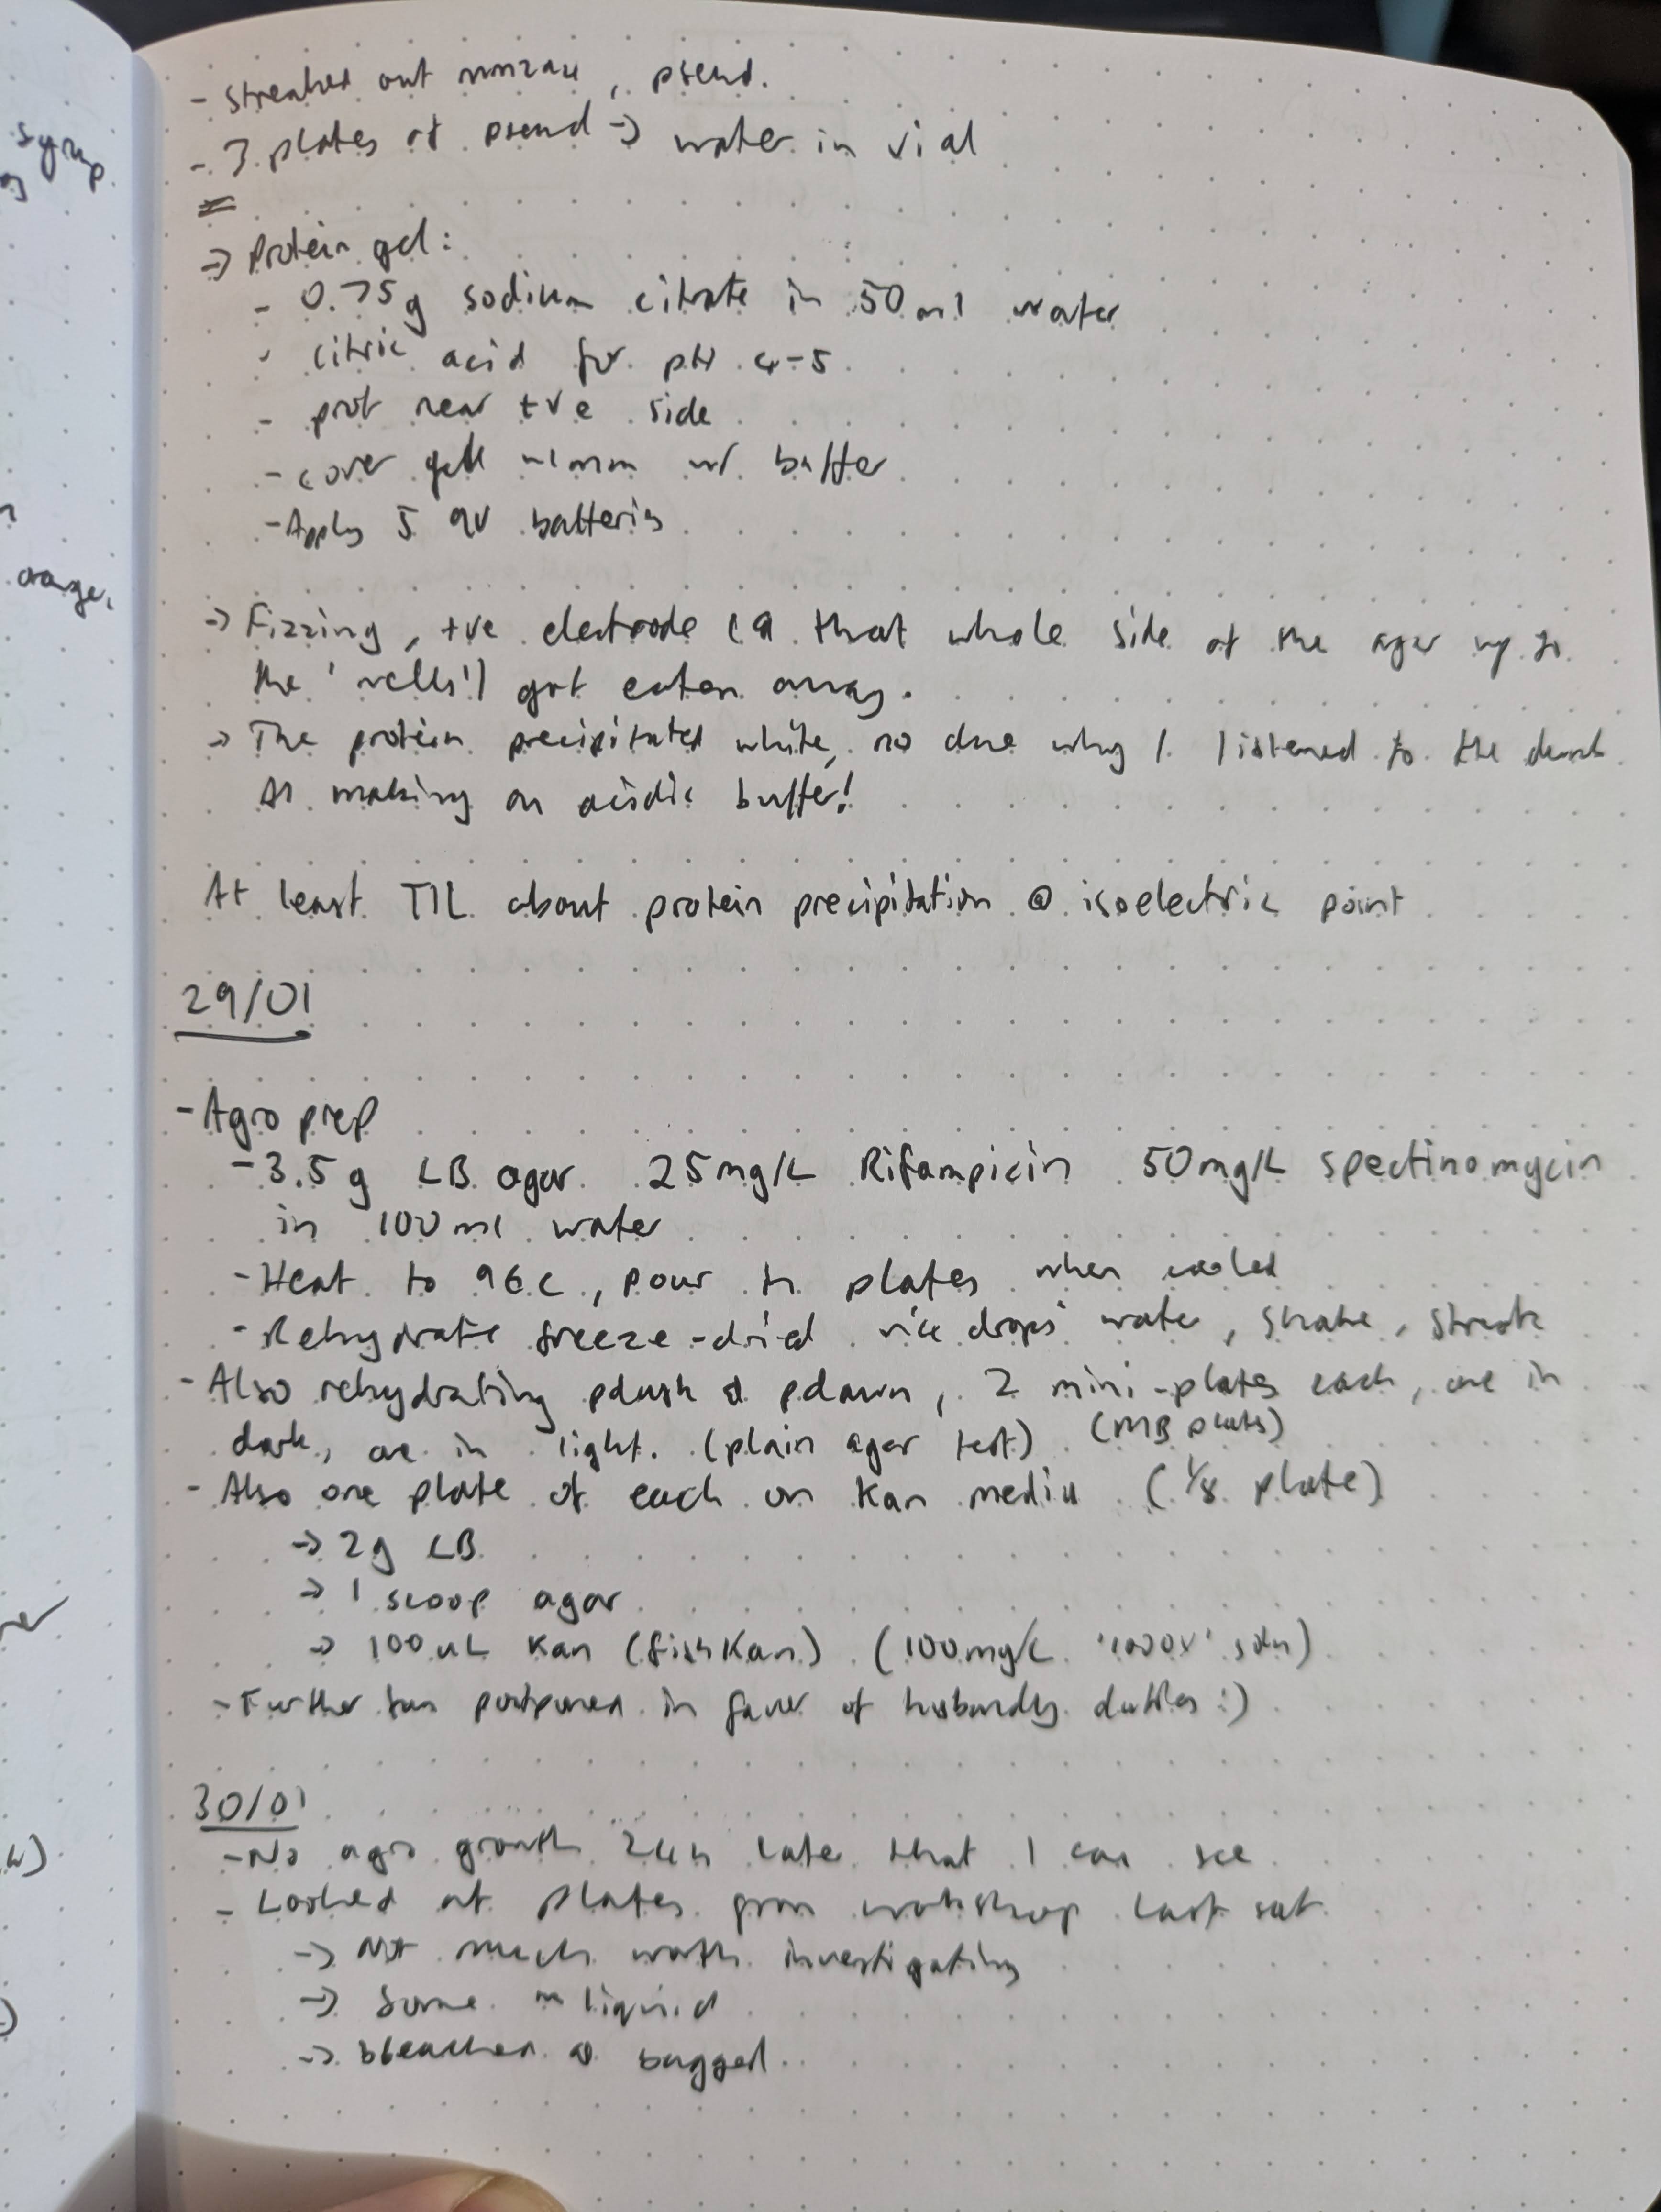 syrup
orange,
- Streaked out , pseud.
- 3 plates of pseud → water in vial
→ Protein gel:
- 0.75g sodium citrate in 50ml water
- citric acid for pH 4-5
- prot near +ve side
- cover gel ~1mm w/ buffer
- Apply 5 9V batteries
→ Fizzing, +ve electrode (& that whole side of the agar up to
the 'wells') got eaten away.
→ The protein precipitated white, no clue why I listened to the dumb
AI making an acidic buffer!
At least TIL about protein precipitation @ isoelectric point
29/01
- Agro prep
- 3.5g LB agar 25mg/L Rifampicin 50mg/L spectinomycin
in 100ml water
- Heat to 96c, pour in plates when cooled
- Rehydrate freeze-dried drops water, shake, streak
- Also rehydrating pdusk & pdawn, 2 mini-plates each, one in
dark, one in light. (plain agar test) (MB plates)
- Also one plate of each on Kan media (1/8 plate)
→ 2g LB
→ 1 scoop agar
→ 100uL Kan (fishKan) (100mg/L '1000x' soln)
- Further postponed in favor of husbandly duties :)
30/01
- No agro growth 24h later that I can see
- Looked at plates from workshop last sat
→ Not much worth investigating
→ Some liquid
→ bleached & bagged